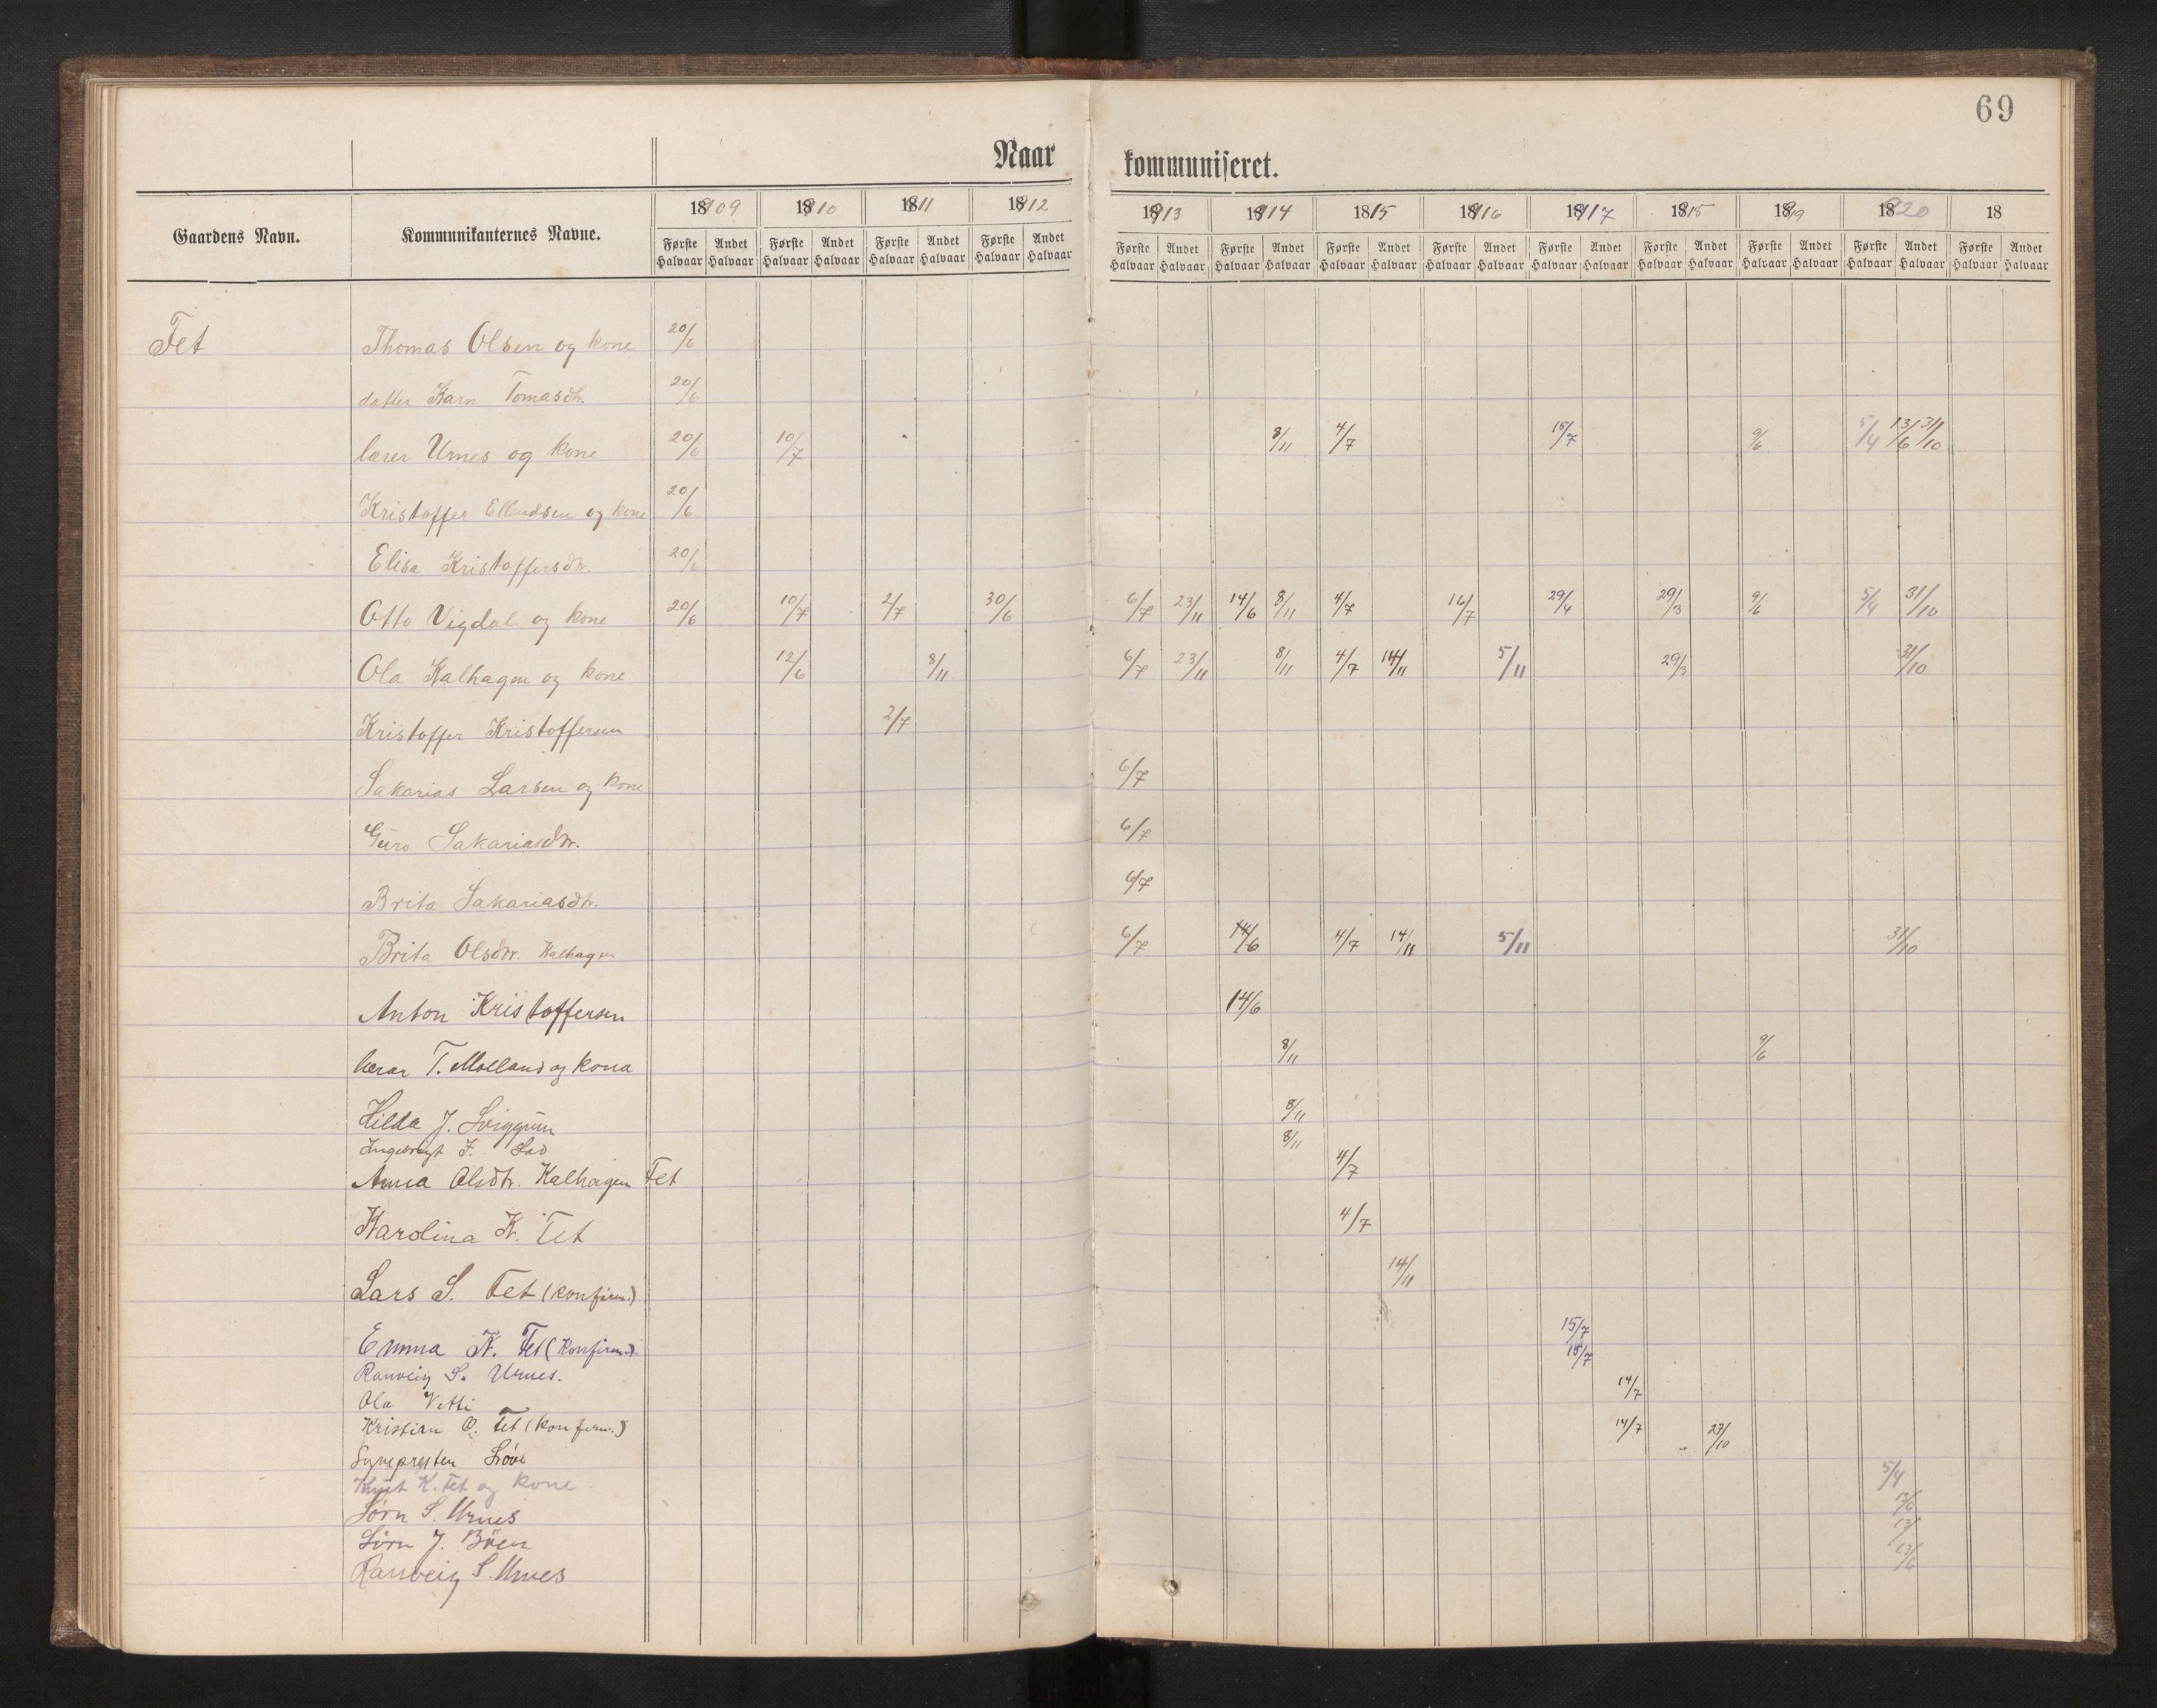 69
Naar kommuniseret.
Gaardens Navn. Kommunikanternes Navne. 1909 1910 1911 1912 1913 1914 1915 1916 1917 1918 1919 1920 18
Første Halvaar Andet Halvaar Første Halvaar Andet Halvaar Første Halvaar Andet Halvaar Første Halvaar Andet Halvaar Første Halvaar Andet Halvaar Første Halvaar Andet Halvaar Første Halvaar Andet Halvaar Første Halvaar Andet Halvaar Første Halvaar Andet Halvaar Første Halvaar Andet Halvaar Første Halvaar Andet Halvaar Første Halvaar Andet Halvaar Første Halvaar Andet Halvaar
Fet Thomas Olsen og kone 20/6
datter Karn Tomasdtr. 20/6
lærer Urnes og kone 20/6 10/7 8/11 4/7 15/7 9/6 5/4 13/6 31/10
Kristoffer Ellendsen og kone 20/6
Elisa Kristoffersdtr. 20/6
Otto Vigdal og kone 20/6 10/7 2/7 30/6 6/7 23/11 14/6 8/11 4/7 16/7 29/4 29/3 9/6 5/4 31/10
Ola Kalhagen og kone 12/6 8/11 6/7 23/11 8/11 4/7 14/11 5/11 29/3 31/10
Kristoffer Kristoffersen 2/7
Sakarias Larsen og kone 6/7
Guro Sakariasdtr. 6/7
Brita Sakariasdtr. 6/7
Brita Olsdtr. Kalhagen 6/7 14/6 4/7 14/11 5/11 31/10
Anton Kristoffersen 14/6
lærar T. Molland og kona 8/11 9/6
Hilda J. Sviggum 8/11
Ingebrigt J. 8/11
Anna Olsdtr. Kalhagen Fet 4/7
Karolina K. Fet 4/7
Lars S. Fet (konfirm.) 14/11
Emma K. Fet (Konfirm.) 15/7
Ranveig S. Urnes. 15/7
Ola Vetti 14/7
Kristian O. Fet (konfirm.) 14/7 27/10
Synepresten
Knut K. Fet og kone 5/4
Sørn S. Urnes 13/6
Sørn J. Bøen 13/
Ranveig S. Urnes 13/6